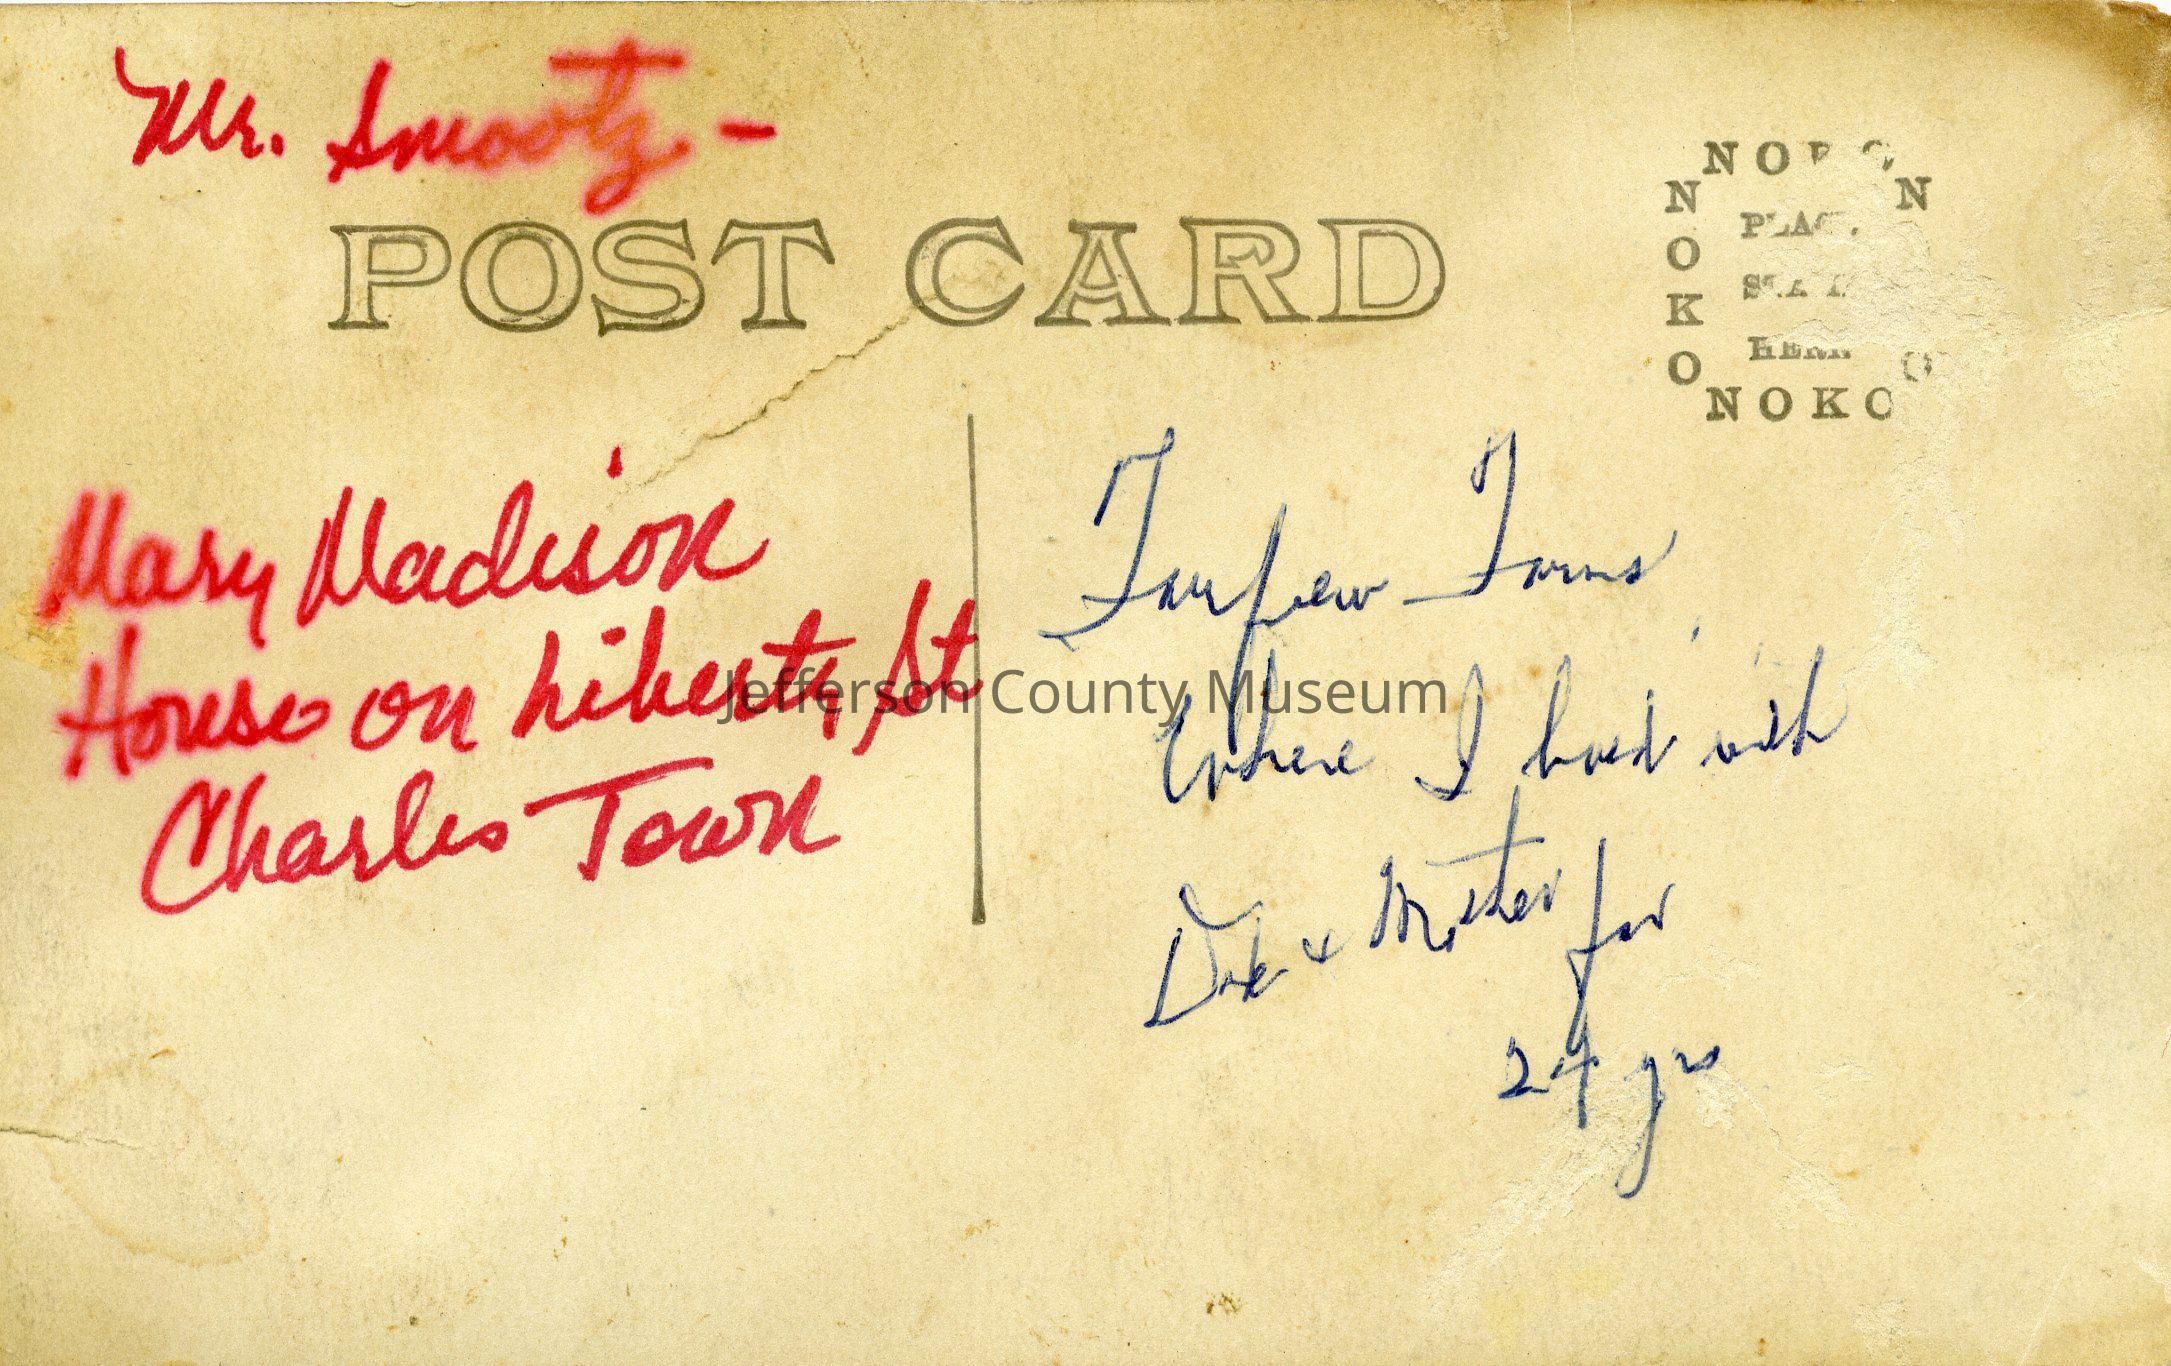 Mr. Smootz -
POST CARD
NOKO
PLACE
STAMP
HERE
NOKO
NOKO
Mary Madison
House on Liberty St
Charles Town
Farms
Where I lived with
& Mother for
24 yrs
Jefferson County Museum